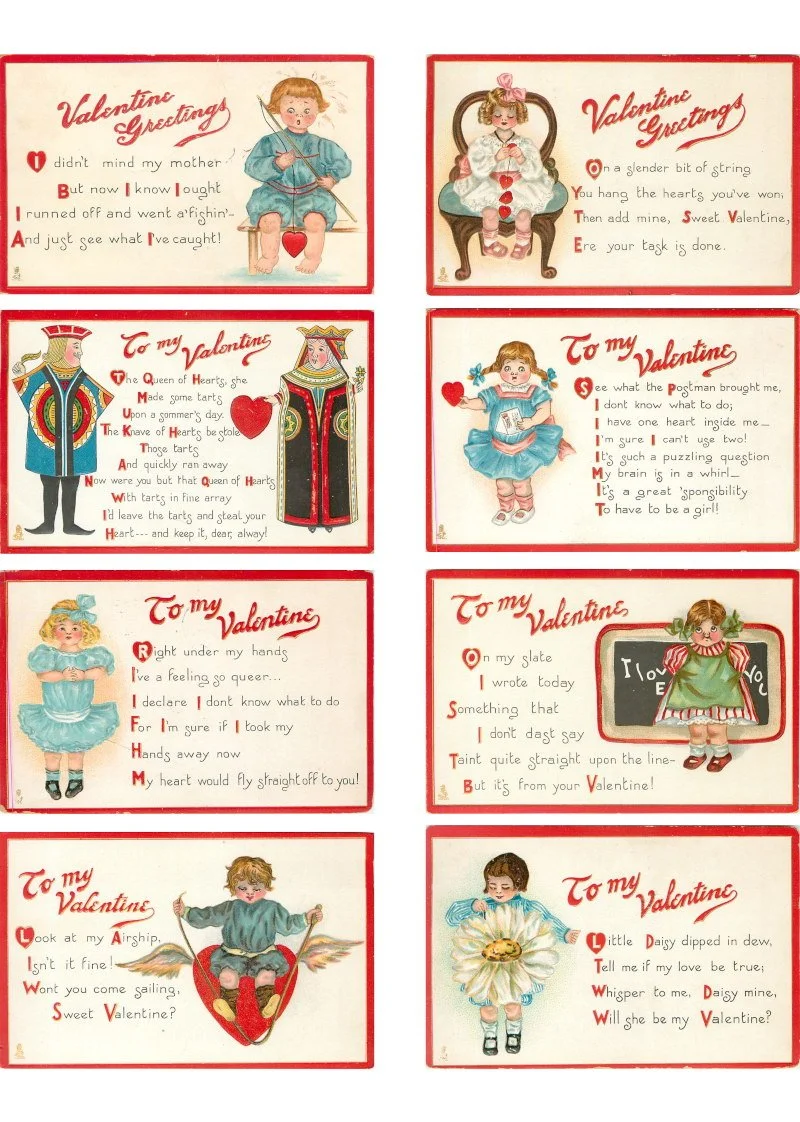 Valentine
Greetings
I didn't mind my mother
But now I know I ought
I runned off and went a'fishin'-
And just see what I've caught!
Valentine
Greetings
On a slender bit of string
You hang the hearts you've won;
Then add mine, Sweet Valentine,
Ere your task is done.
To my Valentine
The Queen of Hearts, she
Made some tarts
Upon a sommer's day.
The Knave of Hearts be stole
Those tarts
And quickly ran away
Now were you but that Queen of Hearts
With tarts in fine array
I'd leave the tarts and steal your
Heart--- and keep it, dear, alway!
To my Valentine
See what the Postman brought me,
I dont know what to do;
I have one heart inside me_
I'm sure I can't use two!
It's such a puzzling question
My brain is in a whirl_
It's a great 'sponsibility
To have to be a girl!
To my Valentine
Right under my hands
I've a feeling so queer...
I declare I dont know what to do
For I'm sure if I took my
Hands away now
My heart would fly straight off to you!
To my Valentine
On my slate
I wrote today
Something that
I don't dast say
Taint quite straight upon the line-
But it's from your Valentine!
I lov YOU
E
To my
Valentine
Look at my Airship,
Isn't it fine!
Wont you come sailing,
Sweet Valentine?
To my Valentine
Little Daisy dipped in dew,
Tell me if my love be true;
Whisper to me, Daisy mine,
Will she be my Valentine?